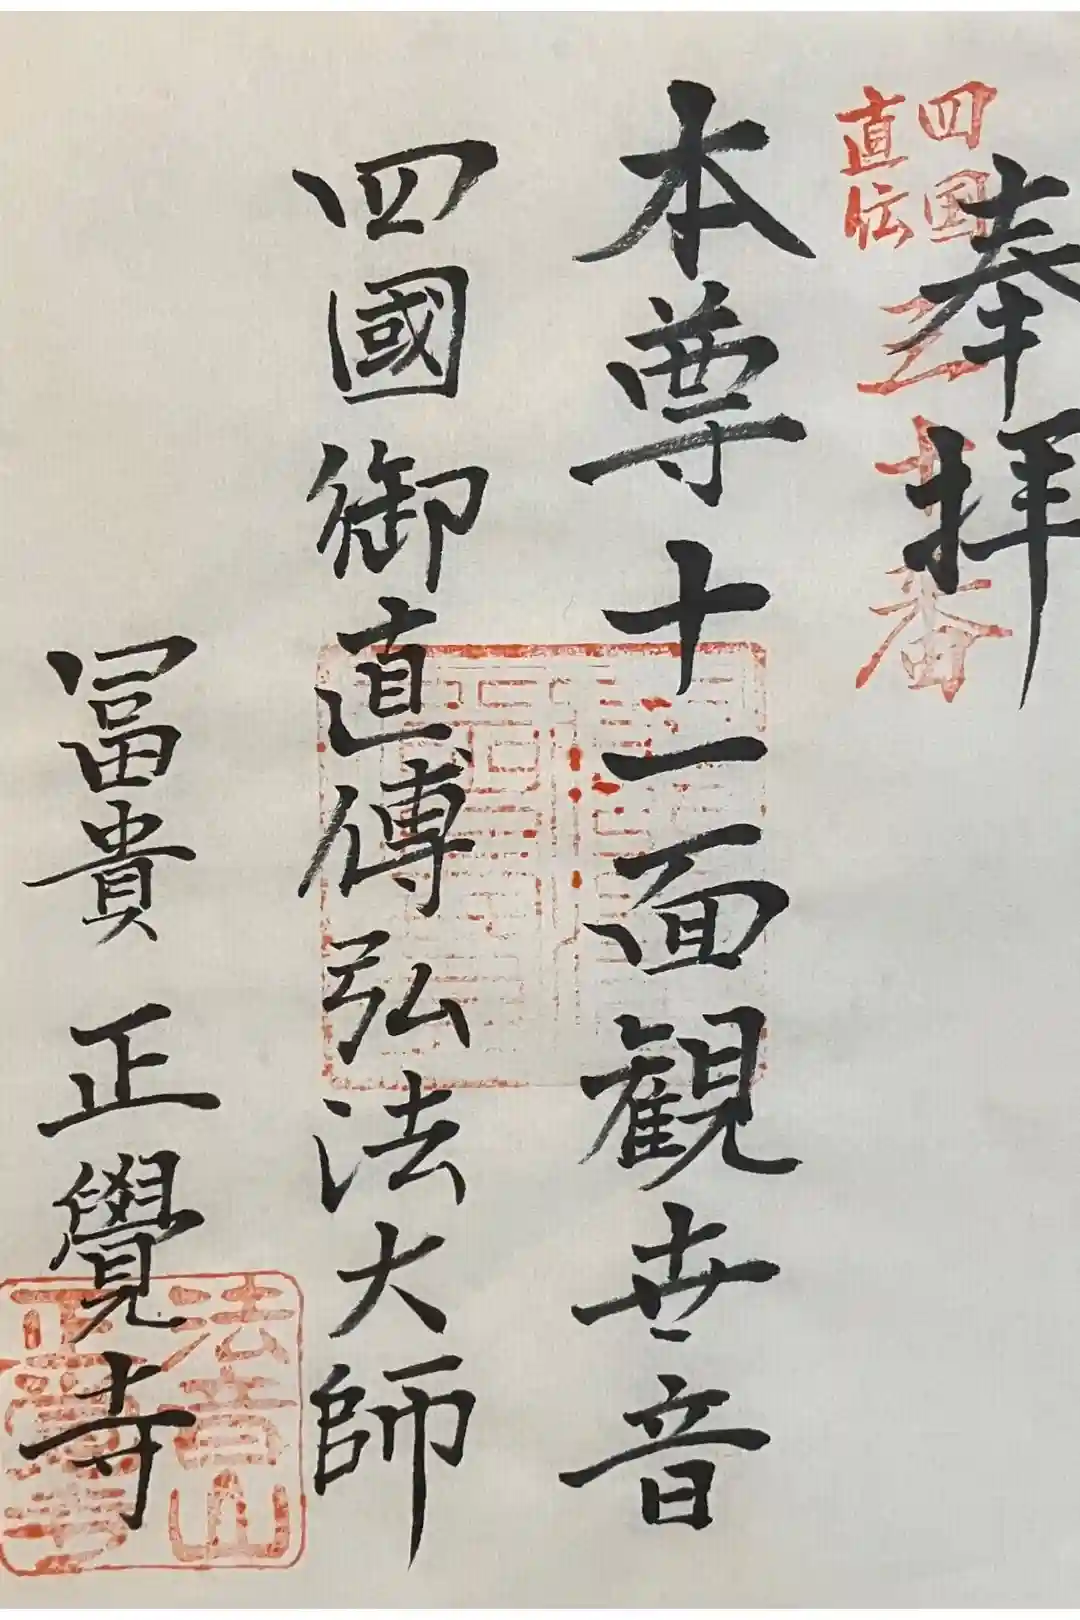 奉拝
四国
直伝
本尊十一面観世音
四國御直傳弘法大師
冨貴 正覺寺
法音山
正覺寺